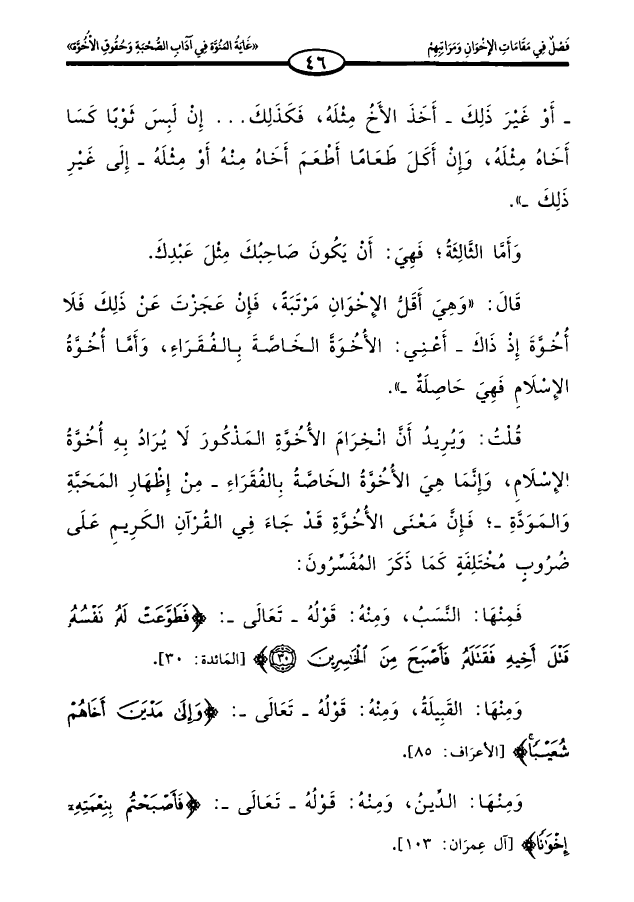 فَصْلٌ فِي مَقَامَاتِ الإِخْوَانِ وَمَرَاتِبِهِمْ
٤٦
«غَايَةُ المُنُوَّة فِي آدَابِ الصُّحْبَةِ وَحُقُوقِ الأُخُوَّة»
ـ أَوْ غَيْرَ ذَلِكَ ـ أَخَذَ الأَخُ مِثْلَهُ، فَكَذَلِكَ... إِنْ لَبِسَ ثَوْبًا كَسَا
أَخَاهُ مِثْلَهُ، وَإِنْ أَكَلَ طَعَامًا أَطْعَمَ أَخَاهُ مِنْهُ أَوْ مِثْلَهُ ـ إِلَى غَيْرِ
ذَلِكَ ـ».
وَأَمَّا الثَّالِثَةُ؛ فَهِيَ: أَنْ يَكُونَ صَاحِبُكَ مِثْلَ عَبْدِكَ.
قَالَ: «وَهِيَ أَقَلُّ الإِخْوَانِ مَرْتَبَةً، فَإِنْ عَجَزْتَ عَنْ ذَلِكَ فَلَا
أُخُوَّةَ إِذْ ذَاكَ ـ أَعْنِي: الأُخُوَةَ الخَاصَّةَ بِالفُقَرَاءِ، وَأَمَّا أُخُوَّةُ
الإِسْلَامِ فَهِيَ حَاصِلَةٌ ـ».
قُلْتُ: وَيُرِيدُ أَنَّ انْخِرَامَ الأُخُوَّةِ المَذْكُورَ لَا يُرَادُ بِهِ أُخُوَّةُ
الإِسْلَامِ، وَإِنَّمَا هِيَ الأُخُوَّةُ الخَاصَّةُ بِالفُقَرَاءِ ـ مِنْ إِظْهَارِ المَحَبَّةِ
وَالمَوَدَّةِ ـ؛ فَإِنَّ مَعْنَى الأُخُوَّةِ قَدْ جَاءَ فِي القُرْآنِ الكَرِيمِ عَلَى
ضُرُوبٍ مُخْتَلِفَةٍ كَمَا ذَكَرَ المُفَسِّرُونَ:
فَمِنْهَا: النَّسَبُ، وَمِنْهُ: قَوْلُهُ ـ تَعَالَى ـ: ﴿فَطَوَّعَتْ لَهُۥ نَفْسُهُۥ
قَتْلَ أَخِيهِ فَقَتَلَهُۥ فَأَصْبَحَ مِنَ الْخَاسِرِينَ ٣٠﴾ [المَائدة: ٣٠].
وَمِنْهَا: القَبِيلَةُ، وَمِنْهُ: قَوْلُهُ ـ تَعَالَى ـ: ﴿وَإِلَىٰ مَدْيَنَ أَخَاهُمْ
شُعَيْبًاۚ﴾ [الأعرَاف: ٨٥].
وَمِنْهَا: الدِّينُ، وَمِنْهُ: قَوْلُهُ ـ تَعَالَى ـ: ﴿فَأَصْبَحْتُم بِنِعْمَتِهِۦٓ
إِخْوَٰنًا﴾ [آل عِمرَان: ١٠٣].